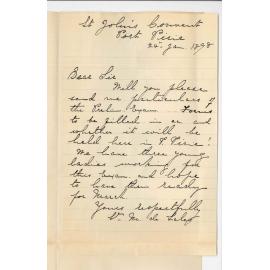 St John's Convent
Port Pirie
24 Jan 1898
Dear Sir
Will you please
send me particulars of
the Prelim Exam. Forms
to be filled in or and
whether it will be
held here in P. Pirie?
We have three young
ladies working for
this Exam. and hope
to have them ready
for March
Yours respectfully
Sr. M. de Sales